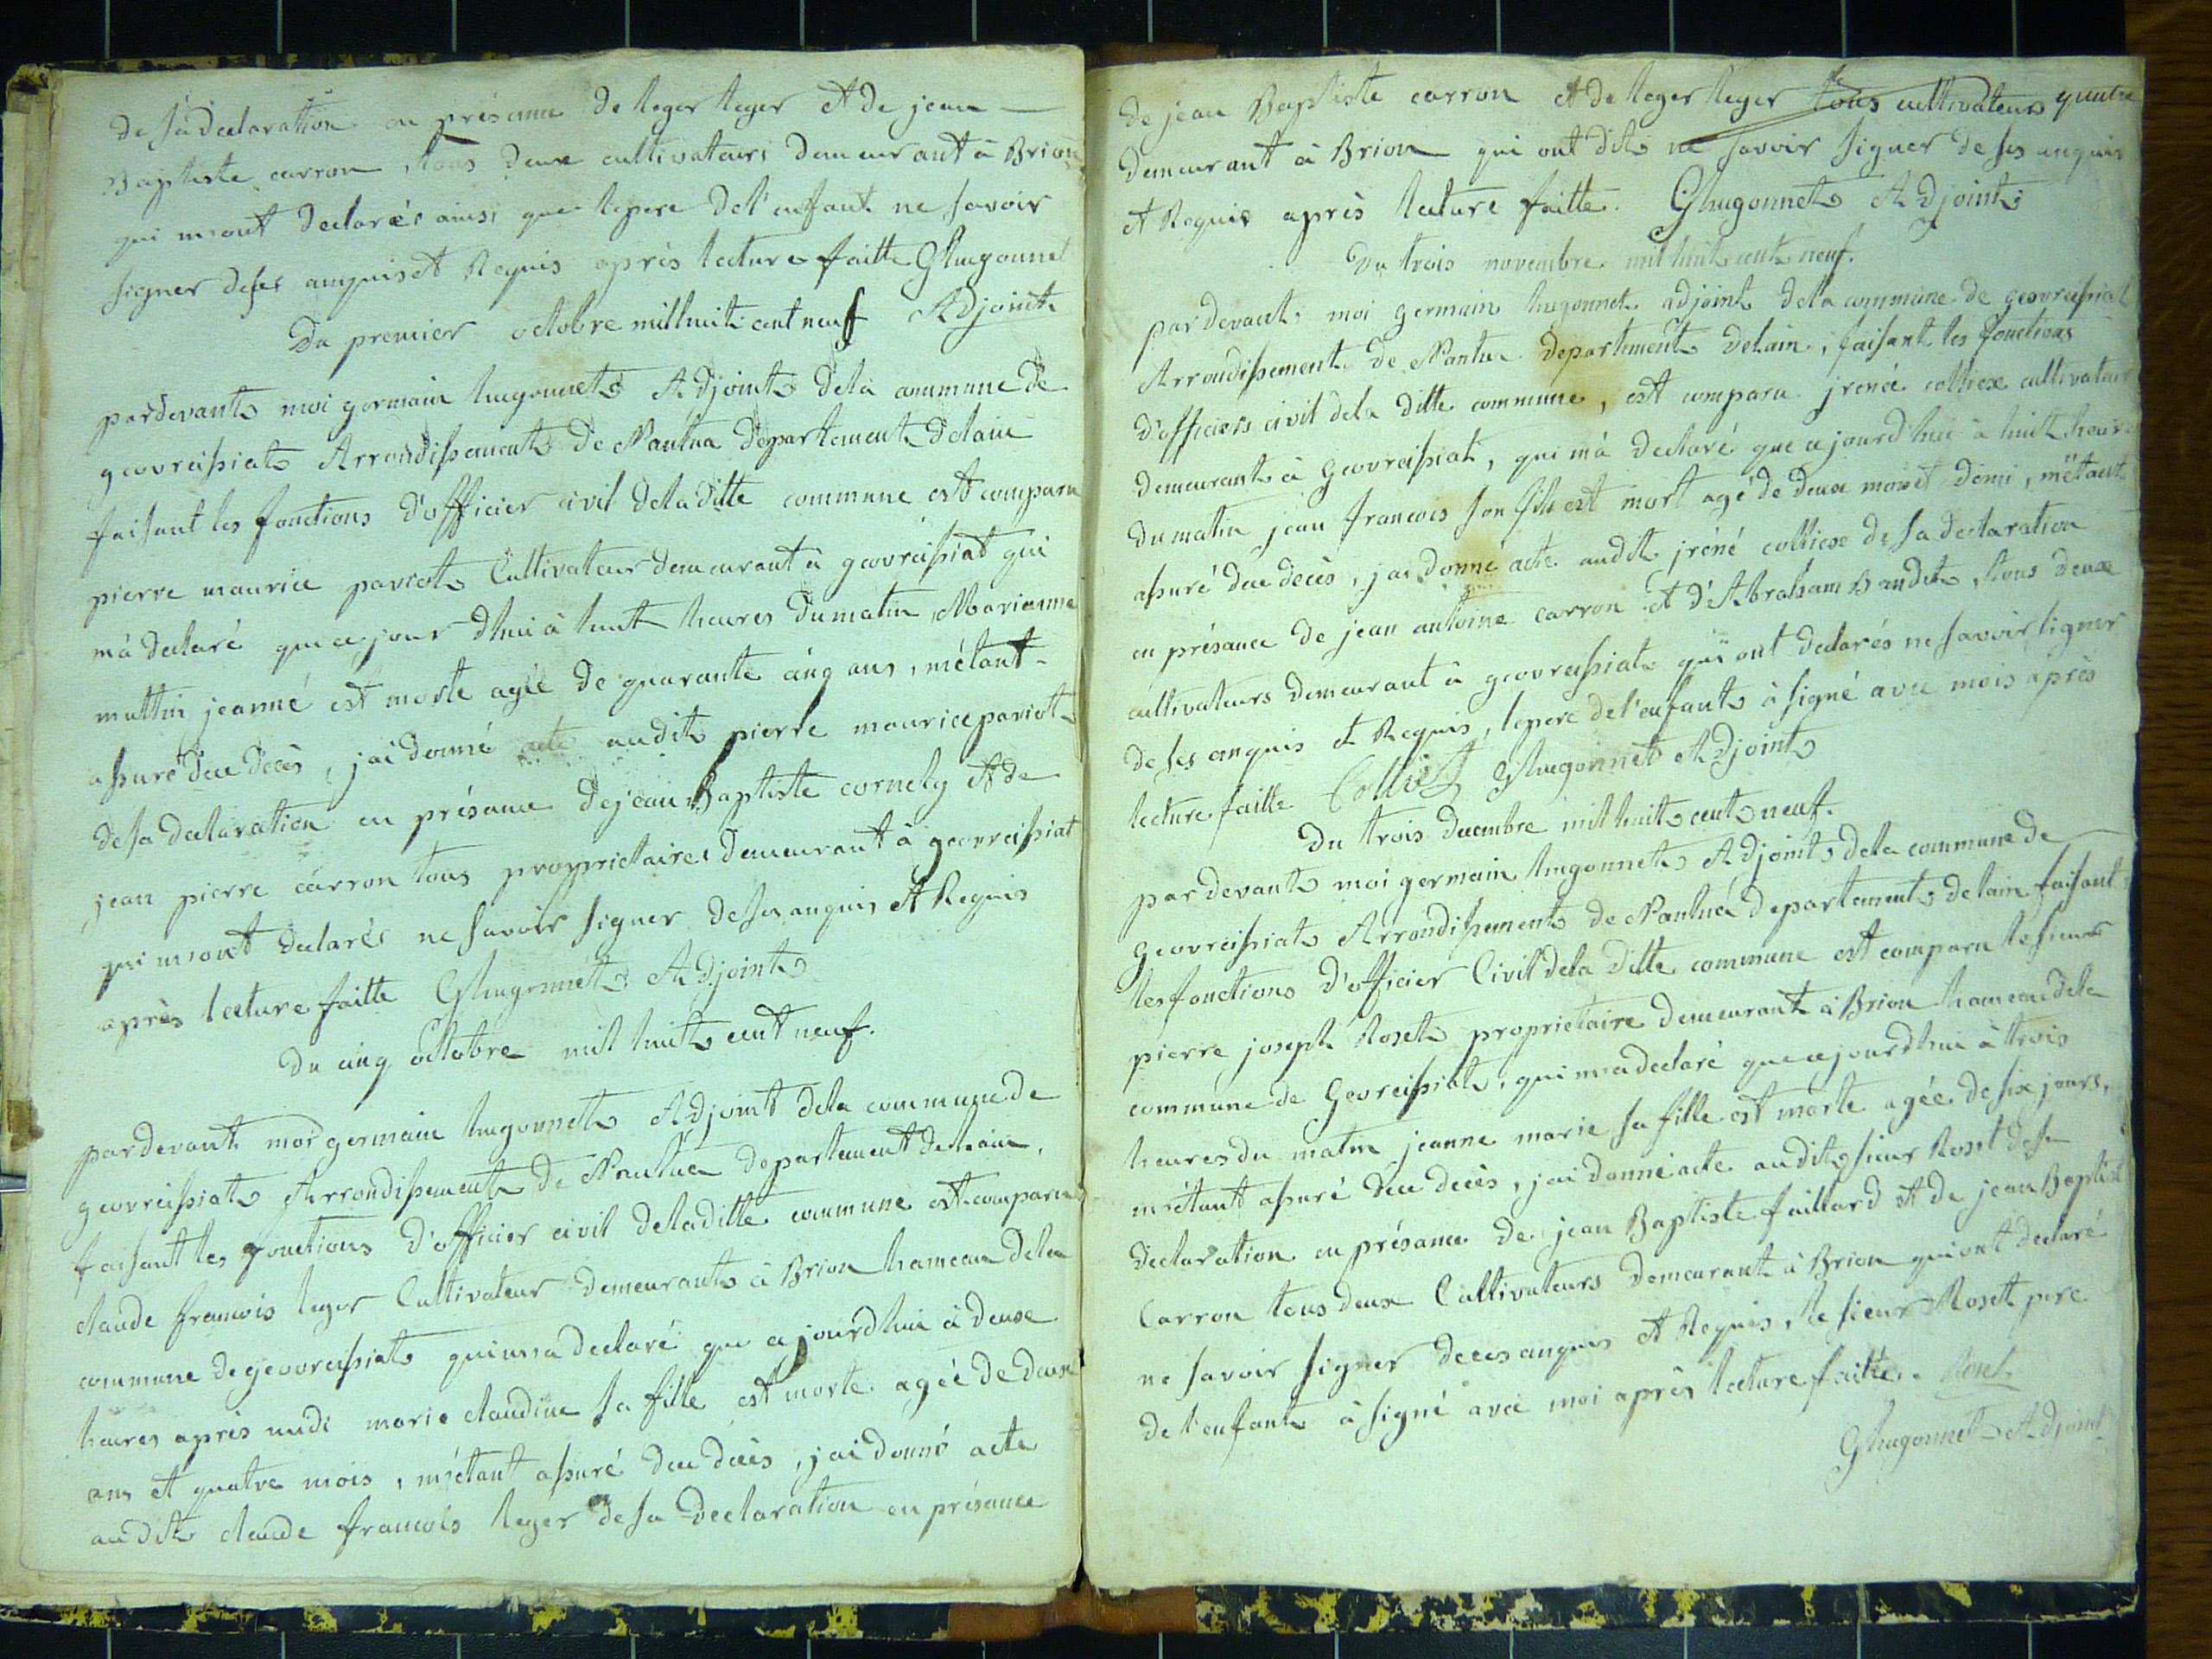 de sa declaration en présance de leger leger et de jean
Baptiste carron, tous deux cultivateurs demeurant à Brion
qui m'ont declarés ainsi que le pere de l'enfant ne savoir
signer de ses anquis et Requis après lecture faitte GHugonnet
Du premier octobre mil huit cent neuf Adjoint
pardevant moi germain hugonnet Adjoint de la commune de
geovreissiat Arrondissement de Nantua Departement delain
faisant les fonctions d'officier civil de la ditte commune est comparu
pierre maurice pariot Cultivateur demeurant à geovreissiat qui
m'à declaré que ce jour dhui à huit heures du matin, Marianne
mattin jeanné est morte agée de quarante cinq ans, m'étant
assuré du decès, j'ai donné acte audit pierre maurice pariot
de sa declaration en présance de jean Baptiste cornely et de
jean pierre carron tous proprietaires demeurant à geovreissiat
qui m'ont declarés ne savoir signer de ses anquis et Requis
après lecture faitte GHugonnet Adjoint
Du cinq octobre mil huit cent neuf.
pardevant moi germain hugonnet Adjoint de la commune de
geovreissiat Arrondissement de Nantua departement de lain,
faisant les fonctions d'officier civil de la ditte commune est comparu
claude francois leger Cultivateur demeurant à Brion hameau de la
commune de geovreissiat qui m'a declaré que ce jourdhui à deux
heures après midi marie claudine sa fille est morte agée de deux
ans et quatre mois, m'étant assuré du decès, j'ai donné acte
audit claude francois leger de sa declaration en présance
de jean Baptiste carron et de leger leger tous cultivateurs
demeurant à Brion qui ont dit ne savoir signer de ses anquis
et Requis après lecture faitte. GHugonnet Adjoint
Du trois novembre mil huit cent neuf.
pardevant moi germain hugonnet adjoint de la commune de geovreissiat
Arrondissement de Nantua Departement delain, faisant les fonctions
d'officiers civil de la ditte commune, est comparu jrené colliex cultivateur
demeurant à Geovreissiat, qui m'à declaré que ce jourd'hui à huit heures
du matin jean francois son fils est mort agé de deux mois et demi, m'étant
assuré du decès, j'ai donné acte audit jréné colliex de sa declaration
en présance de jean antoine carron et d'Abraham Baudet, tous deux
cultivateurs demeurant à geovreissiat qui ont declarés ne savoir signer
de ses anquis et Requis, le pere de l'enfant à signé avec mois après
lecture faitte Colliex GHugonnet Adjoint
Du trois decembre mil huit cent neuf.
pardevant moi germain hugonnet Adjoint de la commune de
geovreissiat Arrondissement de Nantua departement de lain faisant
les fonctions d'officier Civil de la ditte commune est comparu le sieur
pierre joseph Roset proprietaire demeurant à Brion hameau de la
commune de Geovreissiat, qui m'a declaré que ce jourdhui à trois
heures du matin jeanne marie sa fille est morte agée de six jours,
m'étant assuré du decès, j'ai donné acte audit sieur Roset de sa
declaration en présance de jean Baptiste faillard et de jean Baptiste
Carron tous deux Cultivateurs demeurant à Brion qui ont declaré
ne savoir signer de ces anquis et Requis, le sieur Roset pere
de l'enfant à signé avec moi après lecture faitte. Roset
GHugonnet Adjoint